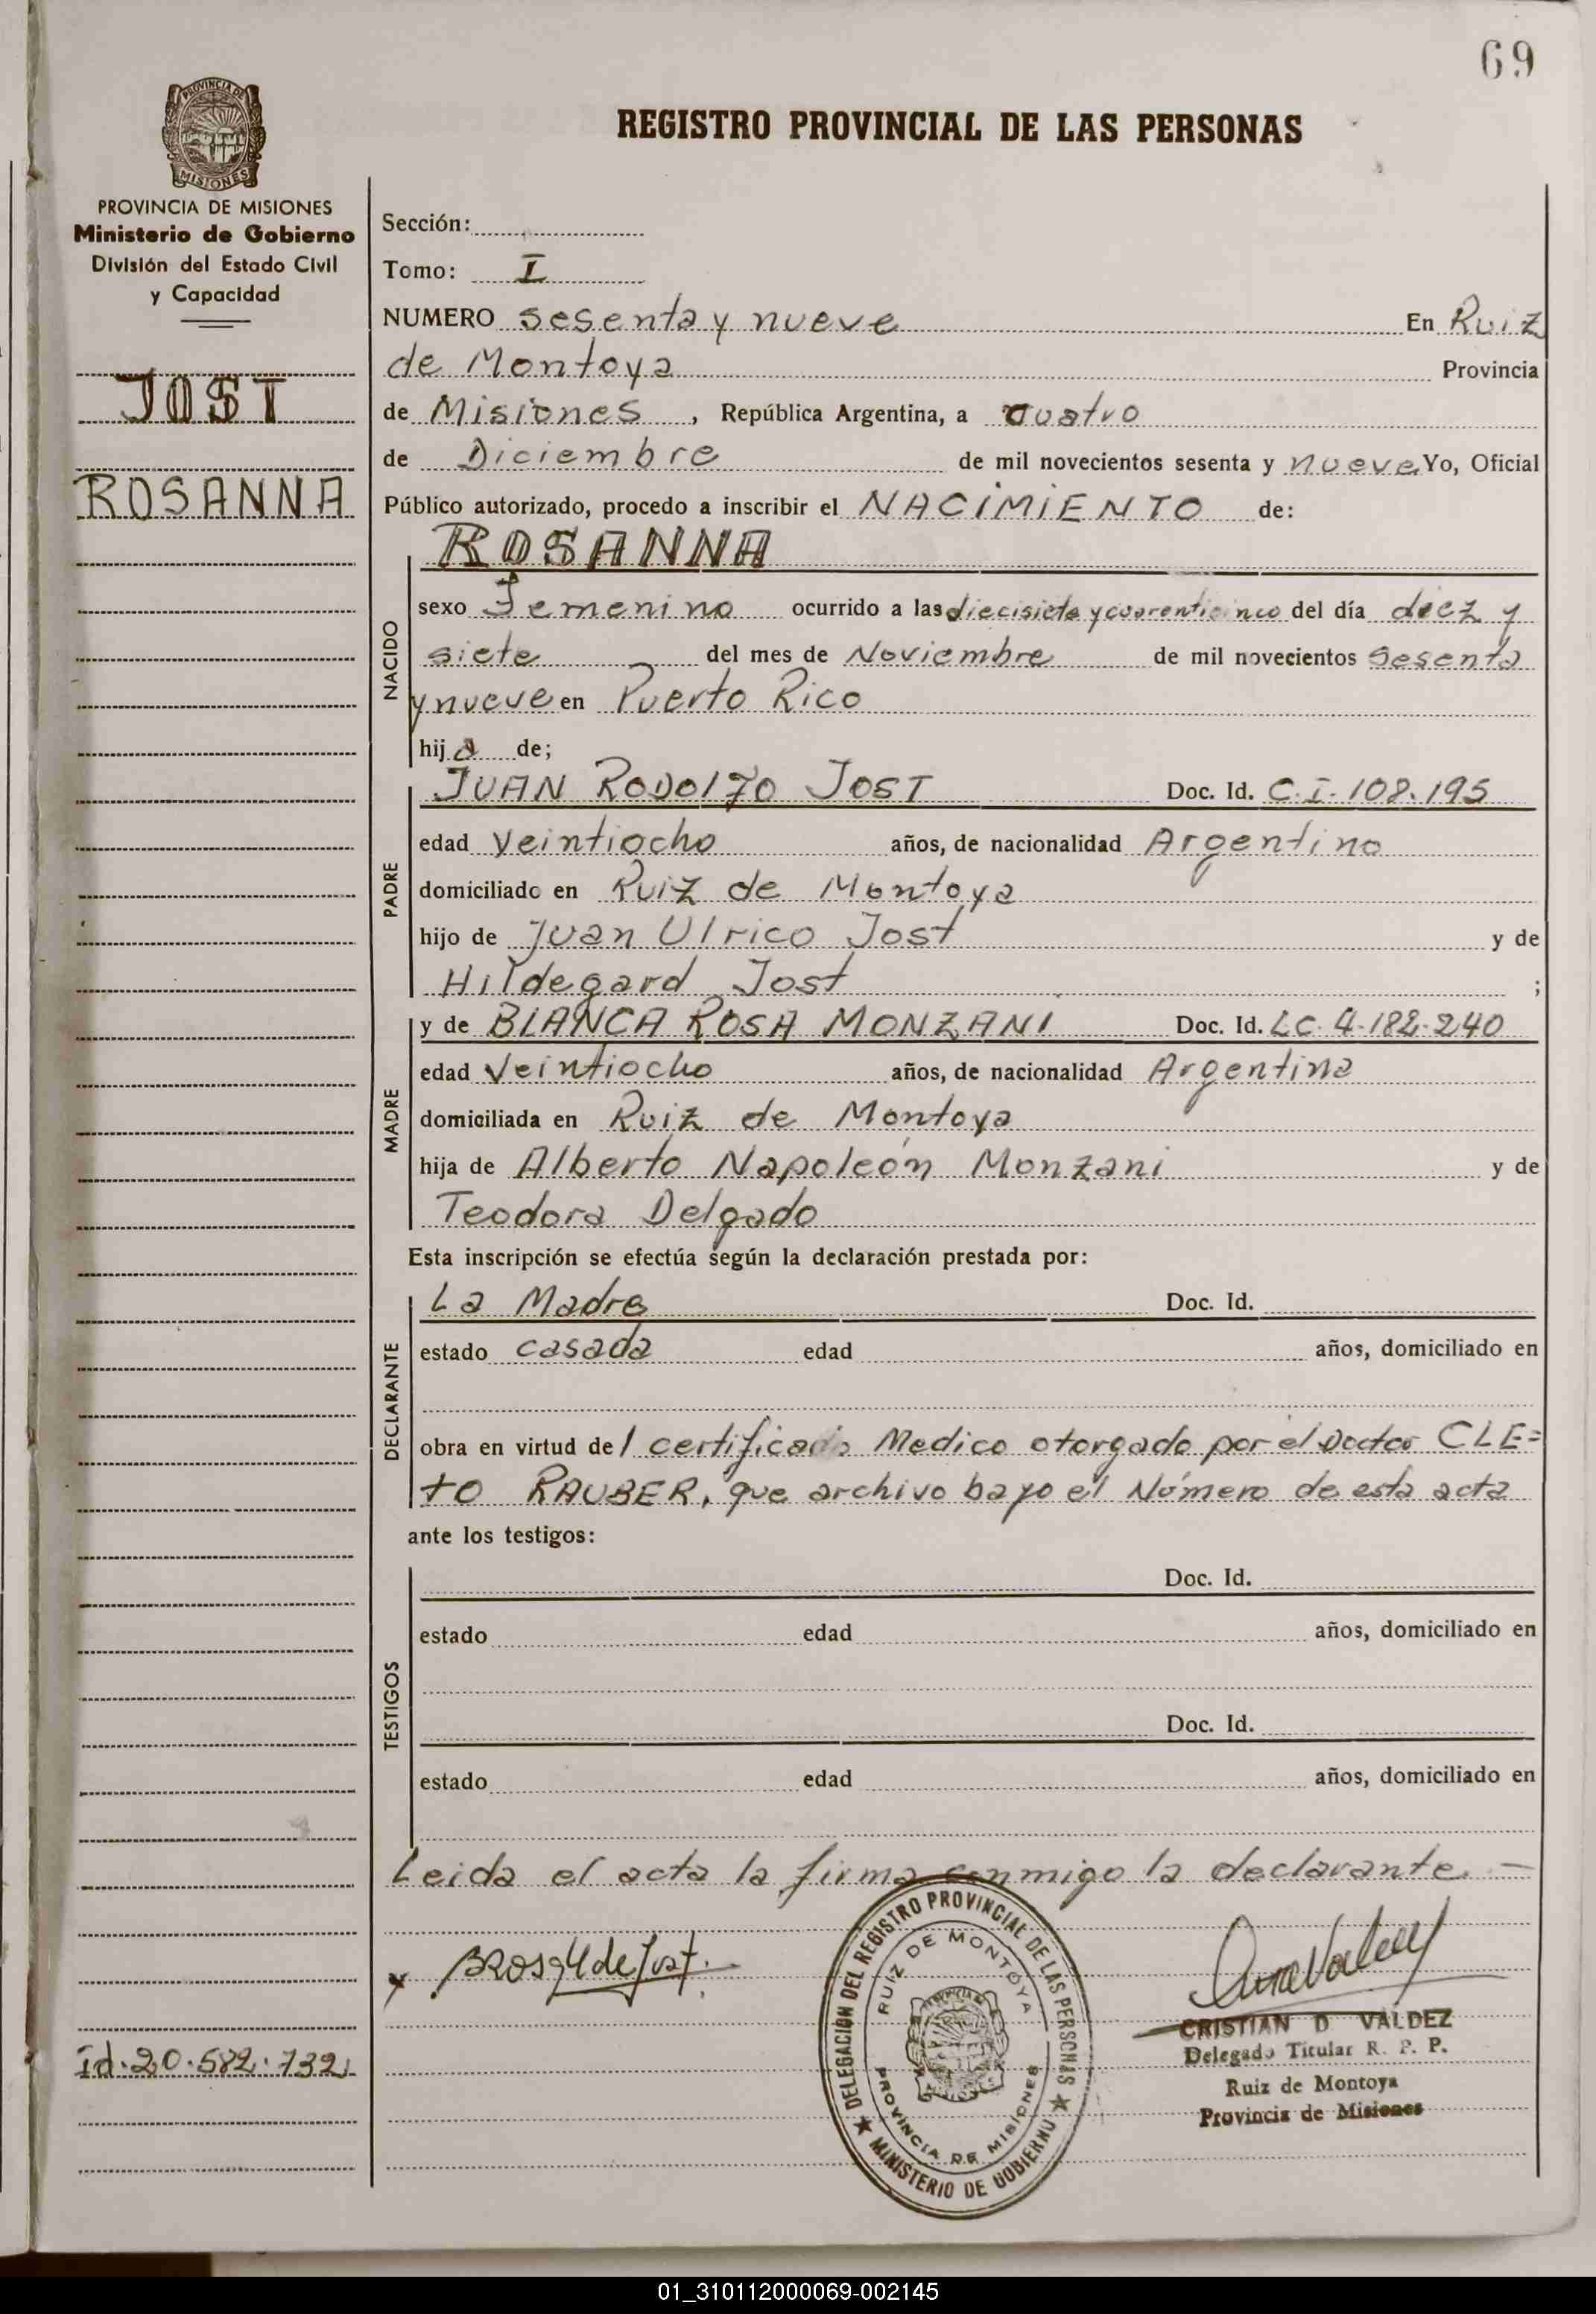 69
REGISTRO PROVINCIAL DE LAS PERSONAS
PROVINCIA DE MISIONES
PROVINCIA DE MISIONES
Ministerio de Gobierno
División del Estado Civil
y Capacidad
JOST
ROSANNA
id. 20.582.732
Sección:
Tomo: I
NUMERO sesenta y nueve En Ruiz
de Montoya Provincia
de Misiones, República Argentina, a cuatro
de Diciembre de mil novecientos sesenta y nueve Yo, Oficial
Público autorizado, procedo a inscribir el NACIMIENTO de:
NACIDO
ROSANNA
sexo Femenino ocurrido a las diecisiete y cuarenticinco del día diez y
siete del mes de Noviembre de mil novecientos sesenta
y nueve en Puerto Rico
hija de;
PADRE
JUAN RODOLFO JOST Doc. Id. C.I. 108.195
edad veintiocho años, de nacionalidad Argentino
domiciliado en Ruiz de Montoya
hijo de Juan Ulrico Jost y de
Hildegard Jost ;
MADRE
y de BLANCA ROSA MONZANI Doc. Id. LC. 4.182.240
edad veintiocho años, de nacionalidad Argentina
domiciliada en Ruiz de Montoya
hija de Alberto Napoleón Monzani y de
Teodora Delgado
Esta inscripción se efectúa según la declaración prestada por:
DECLARANTE
La Madre Doc. Id.
estado casada edad años, domiciliado en
obra en virtud del certificado Medico otorgado por el Doctor CLE=
to RAUBER, que archivo bajo el Número de esta acta
ante los testigos:
TESTIGOS
Doc. Id.
estado edad años, domiciliado en
Doc. Id.
estado edad años, domiciliado en
Leida el acta la firma conmigo la declarante.—
x BRosa M de Jost.
DELEGACIÓN DEL REGISTRO PROVINCIAL DE LAS PERSONAS
MINISTERIO DE GOBIERNO
RUIZ DE MONTOYA
PROVINCIA DE MISIONES
CRISTIAN D. VALDEZ
Delegado Titular R. P. P.
Ruiz de Montoya
Provincia de Misiones
01_310112000069-002145